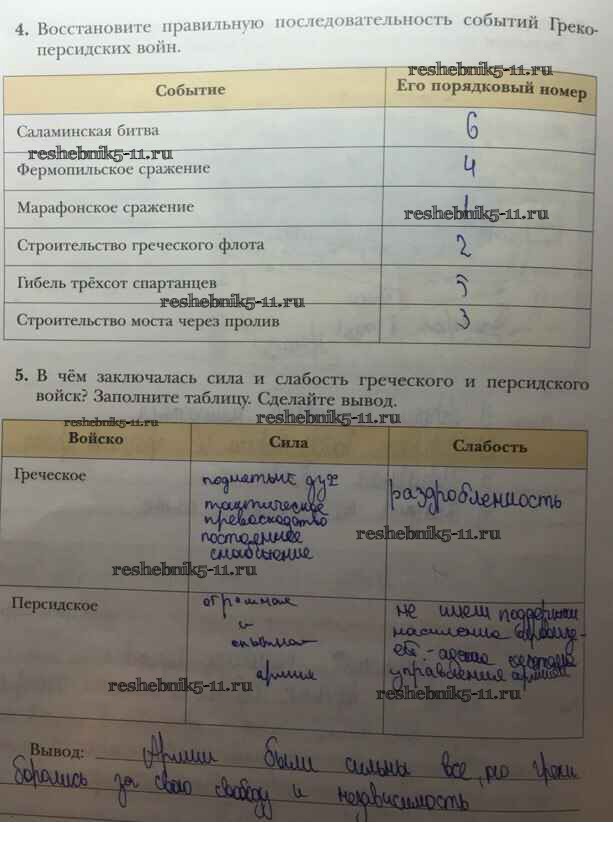 4. Восстановите правильную последовательность событий Греко-
персидских войн.
reshebnik5-11.ru
Событие Его порядковый номер
Саламинская битва 6
reshebnik5-11.ru
Фермопильское сражение 4
Марафонское сражение 1
reshebnik5-11.ru
Строительство греческого флота 2
Гибель трёхсот спартанцев 5
reshebnik5-11.ru
Строительство моста через пролив 3
5. В чём заключалась сила и слабость греческого и персидского
войск? Заполните таблицу. Сделайте вывод.
reshebnik5-11.ru reshebnik5-11.ru
Войско Сила Слабость
Греческое
поднатые дух
тактическое
превосходство
постоянное
снабжение
раздробленность
reshebnik5-11.ru
reshebnik5-11.ru
Персидское
огромная
и
опытная
армия
не имел поддержки
населения
управления армией
reshebnik5-11.ru
reshebnik5-11.ru
Вывод: Армии были сильны все, но греки
боролись за свою свободу и независимость